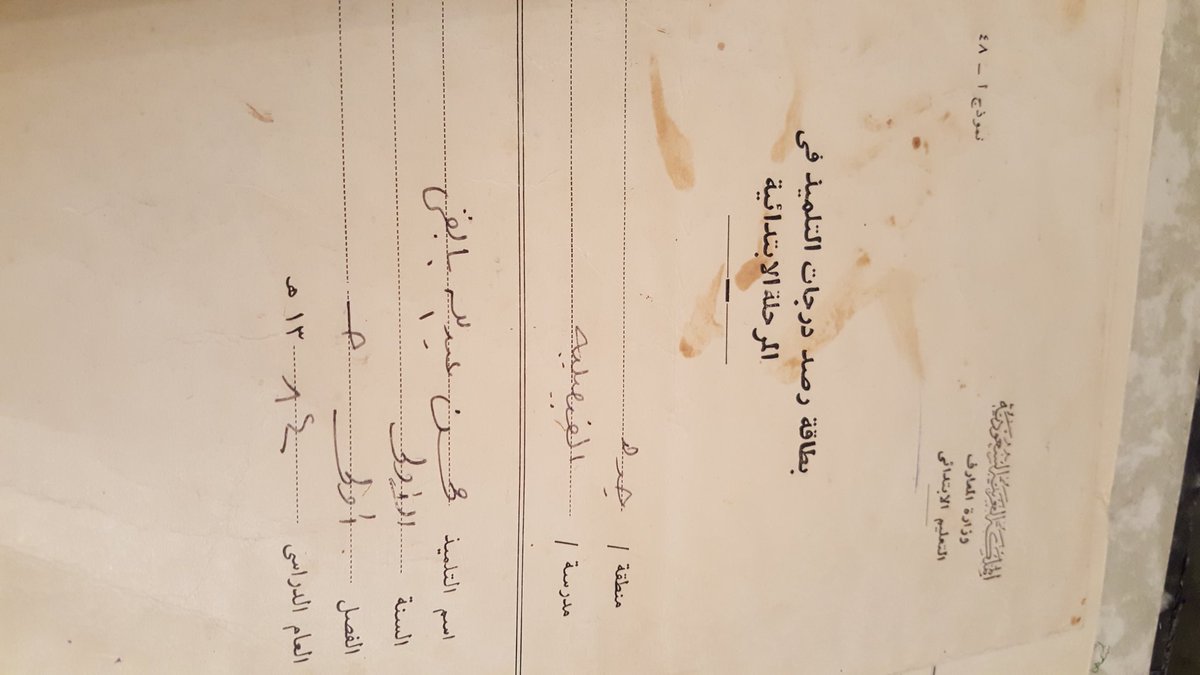 المملكة العربية السعودية
وزارة المعارف
التعليم الابتدائى
نموذج ٢ – ٤٨
بطاقة رصد درجات التلميذ فى
المرحلة الابتدائية
منطقة / جده
مدرسة / الفيصلية
اسم التلميذ
السنة الاولى
الفصل اولى
العام الدراسى ١٣ هـ